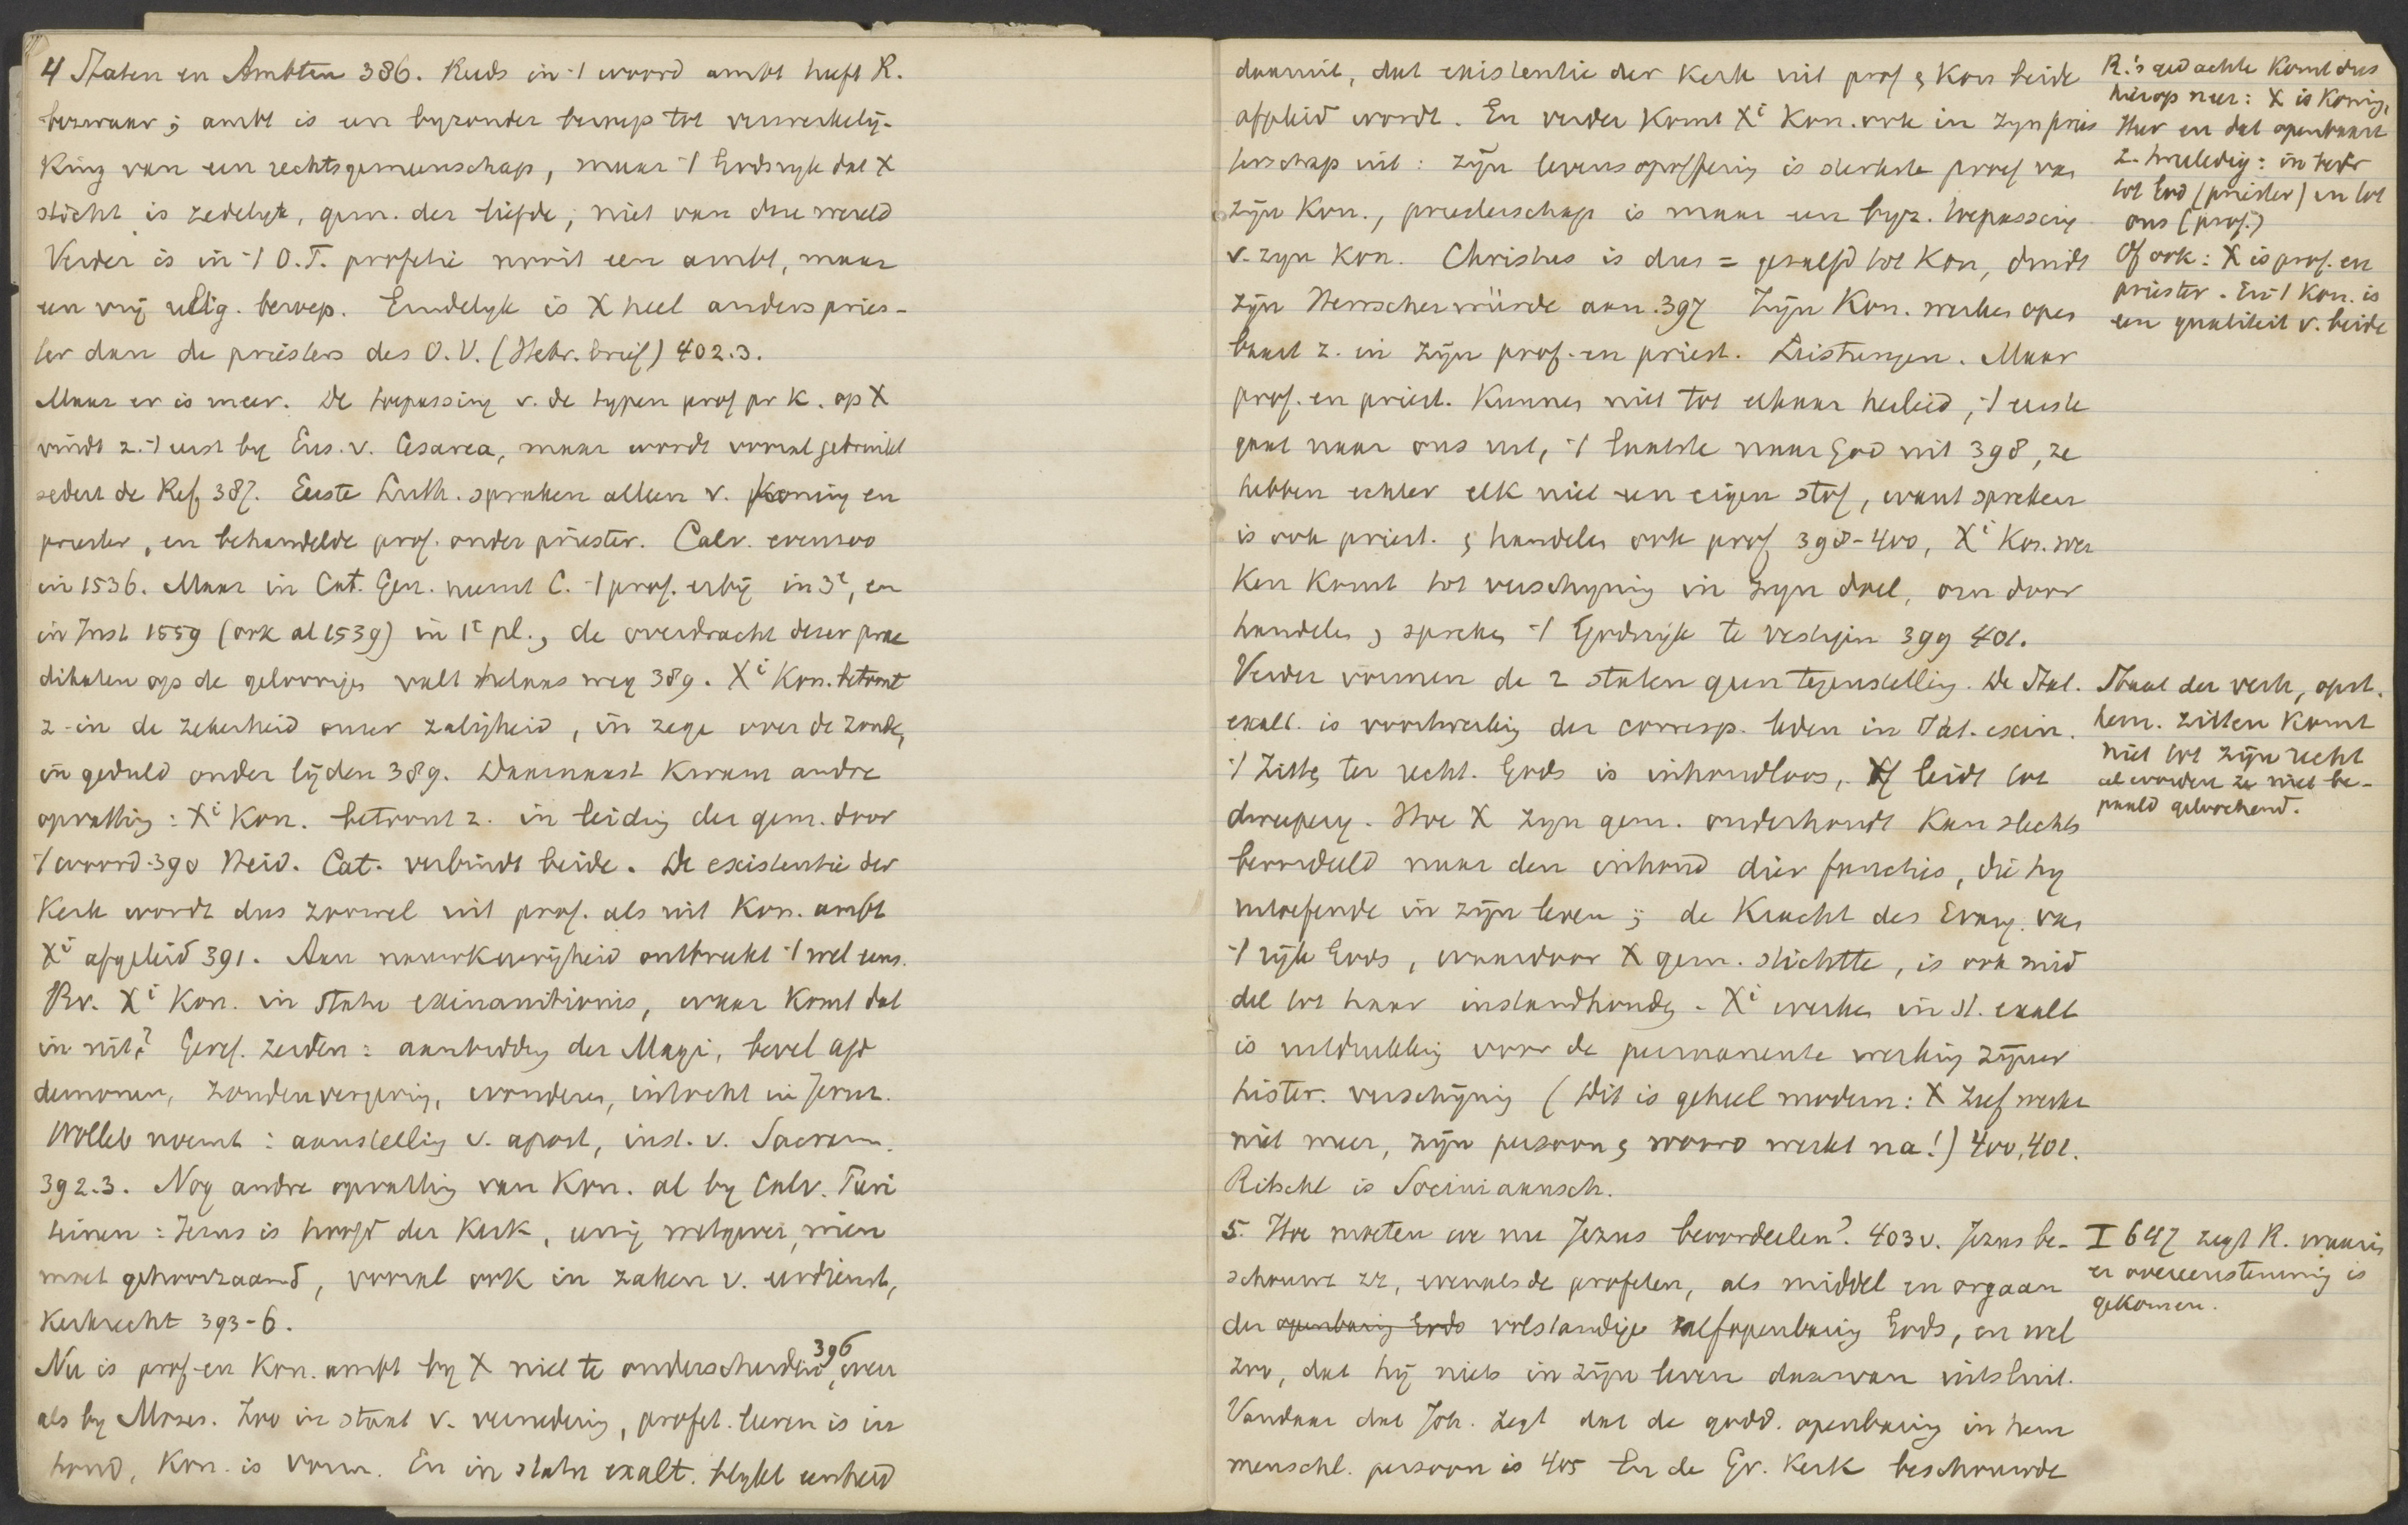 4 Staten en Ambten 386. Reeds in 't woord ambt heeft R.
bezwaar; ambt is een byzonder beroep tot verwerkelij-
king van een rechtsgemeenschap, maar 't Godsryk dat X
sticht is zedelyk, gem. der liefde, niet van deze wereld
Verder is in 't O.T. profetie nooit een ambt, maar
een vrij relig. beroep. Eindelyk is X heel anders pries-
ter dan de priesters des O.V. (Hebr. brief) 402.3.
Maar er is meer. De toepassing v. de typen prof pr k. op X
vindt z. 't eerst by Eus. v. Cesarea, maar wordt vooral gebruikt
sedert de Ref 387. Eerste Luth. spraken alleen v. koning en
priester, en behandelde prof. onder priester. Calv. evenzoo
in 1536. Maar in Cat. Gen. neemt C. 't prof. erbij in 3e, en
in Inst 1559 (ook al 1539) in 1e pl., de overdracht dezer prae
dikaten op de geloovigen valt helaas weg 389. Xi Kon. betoont
z. in de zekerheid onzer zaligheid, in zege over de zonde,
in geduld onder lijden 389. Daarnaast kwam andre
opvatting: Xi Kon. betoont z. in leiding der gem. door
't woord 390 Heid. Cat. verbindt beide. De existentie der
Kerk wordt dus zoowel uit prof. als uit Kon. ambt
Xi afgeleid 391. Aan nauwkeurigheid ontbreekt 't wel eens.
Bv. Xi Kon. in statu exinanitionis, waar komt dat
in uit? Geref. zeiden: aanbidding der Magi, bevel aan
demonen, zondenvergeving, wonderen, intocht in Jeruz.
Wolleb noemt: aanstelling v. apost, inst. v. Sacram.
392.3. Nog andre opvatting van Kon. al by Calv. Turi
teinen: Jezus is hoofd der Kerk, eenig wetgever, wien
moet gehoorzaamd, vooral ook in zaken v. eeredienst,
Kerkrecht 393-6.
Nu is prof en Kon. ambt by X niet te onderscheiden 396, even
als by Mozes. Zoo in staat v. vernedering, profet. leeren is in
houd, Kon. is vorm. En in statu exalt. blykt eenheid
daaruit, dat existentie der Kerk uit prof & Kon beide
afgeleid wordt. En verder komt Xi Kon. ook in zyn pries
terschap uit: zijn levensopoffering is sterkste proef van
zijn Kon., priesterschap is maar een byz. toepassing
v. zyn Kon. Christus is dus = gezalfd tot Kon, duidt
zijn Herrscherwürde aan. 397 Zijn Kon. werken open
baart z. in zijn prof. en priest. Leistungen. Maar
prof. en priest. kunnen niet tot elkaar herleid, 't eerste
gaat naar ons uit, 't laatste naar God uit 398, ze
hebben echter elk niet een eigen stof, want spreken
is ook priest. & handelen ook prof 398-400, Xi Kon. wer
ken komt tot verschyning in zyn doel, om door
handelen & spreken 't Godsrijk te vestigen 399 401.
Verder vormen de 2 staten geen tegenstelling. De Stat.
exalt. is voortwerking der corresp. leden in Stat. exin.
't Zitten ter recht. Gods is inhoudloos, of leidt tot
dweepery. Hoe X zyn gem. onderhoudt kan slechts
beoordeeld naar den inhoud dier functies, die hy
uitoefende in zijn leven; de kracht des Evang. van
't rijk Gods, waardoor X gem. stichtte, is ook mid
del tot haar instandhouding. Xi werken in st. exalt
is uitdrukking voor de permanente werking zijner
histor. verschijning (Dit is geheel modern: X zelf werkt
niet meer, zijn persoon & woord werkt na!) 400, 401.
Ritschl is Sociniaansch.
5. Hoe moeten we nu Jezus beoordeelen? 403v. Jezus be-
schouwt zz, evenals de profeten, als middel en orgaan
der openbaring Gods volstandige zelfopenbaring Gods, en wel
zoo, dat hij niets in zijn leven daarvan uitsluit.
Vandaar dat Joh. zegt dat de godd. openbaring in hem
menschl. persoon is 405 En de Gr. Kerk beschouwde
R.'s gedachte komt dus
hierop neer: X is Koning,
Heer en dat openbaart
z. tweeledig: in bedr
tot God (priester) en tot
ons (prof.)
Of ook: X is prof. en
priester. En 't Kon. is
een qualiteit v. beide
Staat der verh, opst.
hem. zitten komt
niet tot zijn recht
al worden ze niet be-
paald geloochend.
I 647 zegt R. waarin
er overeenstemming is
gekomen.